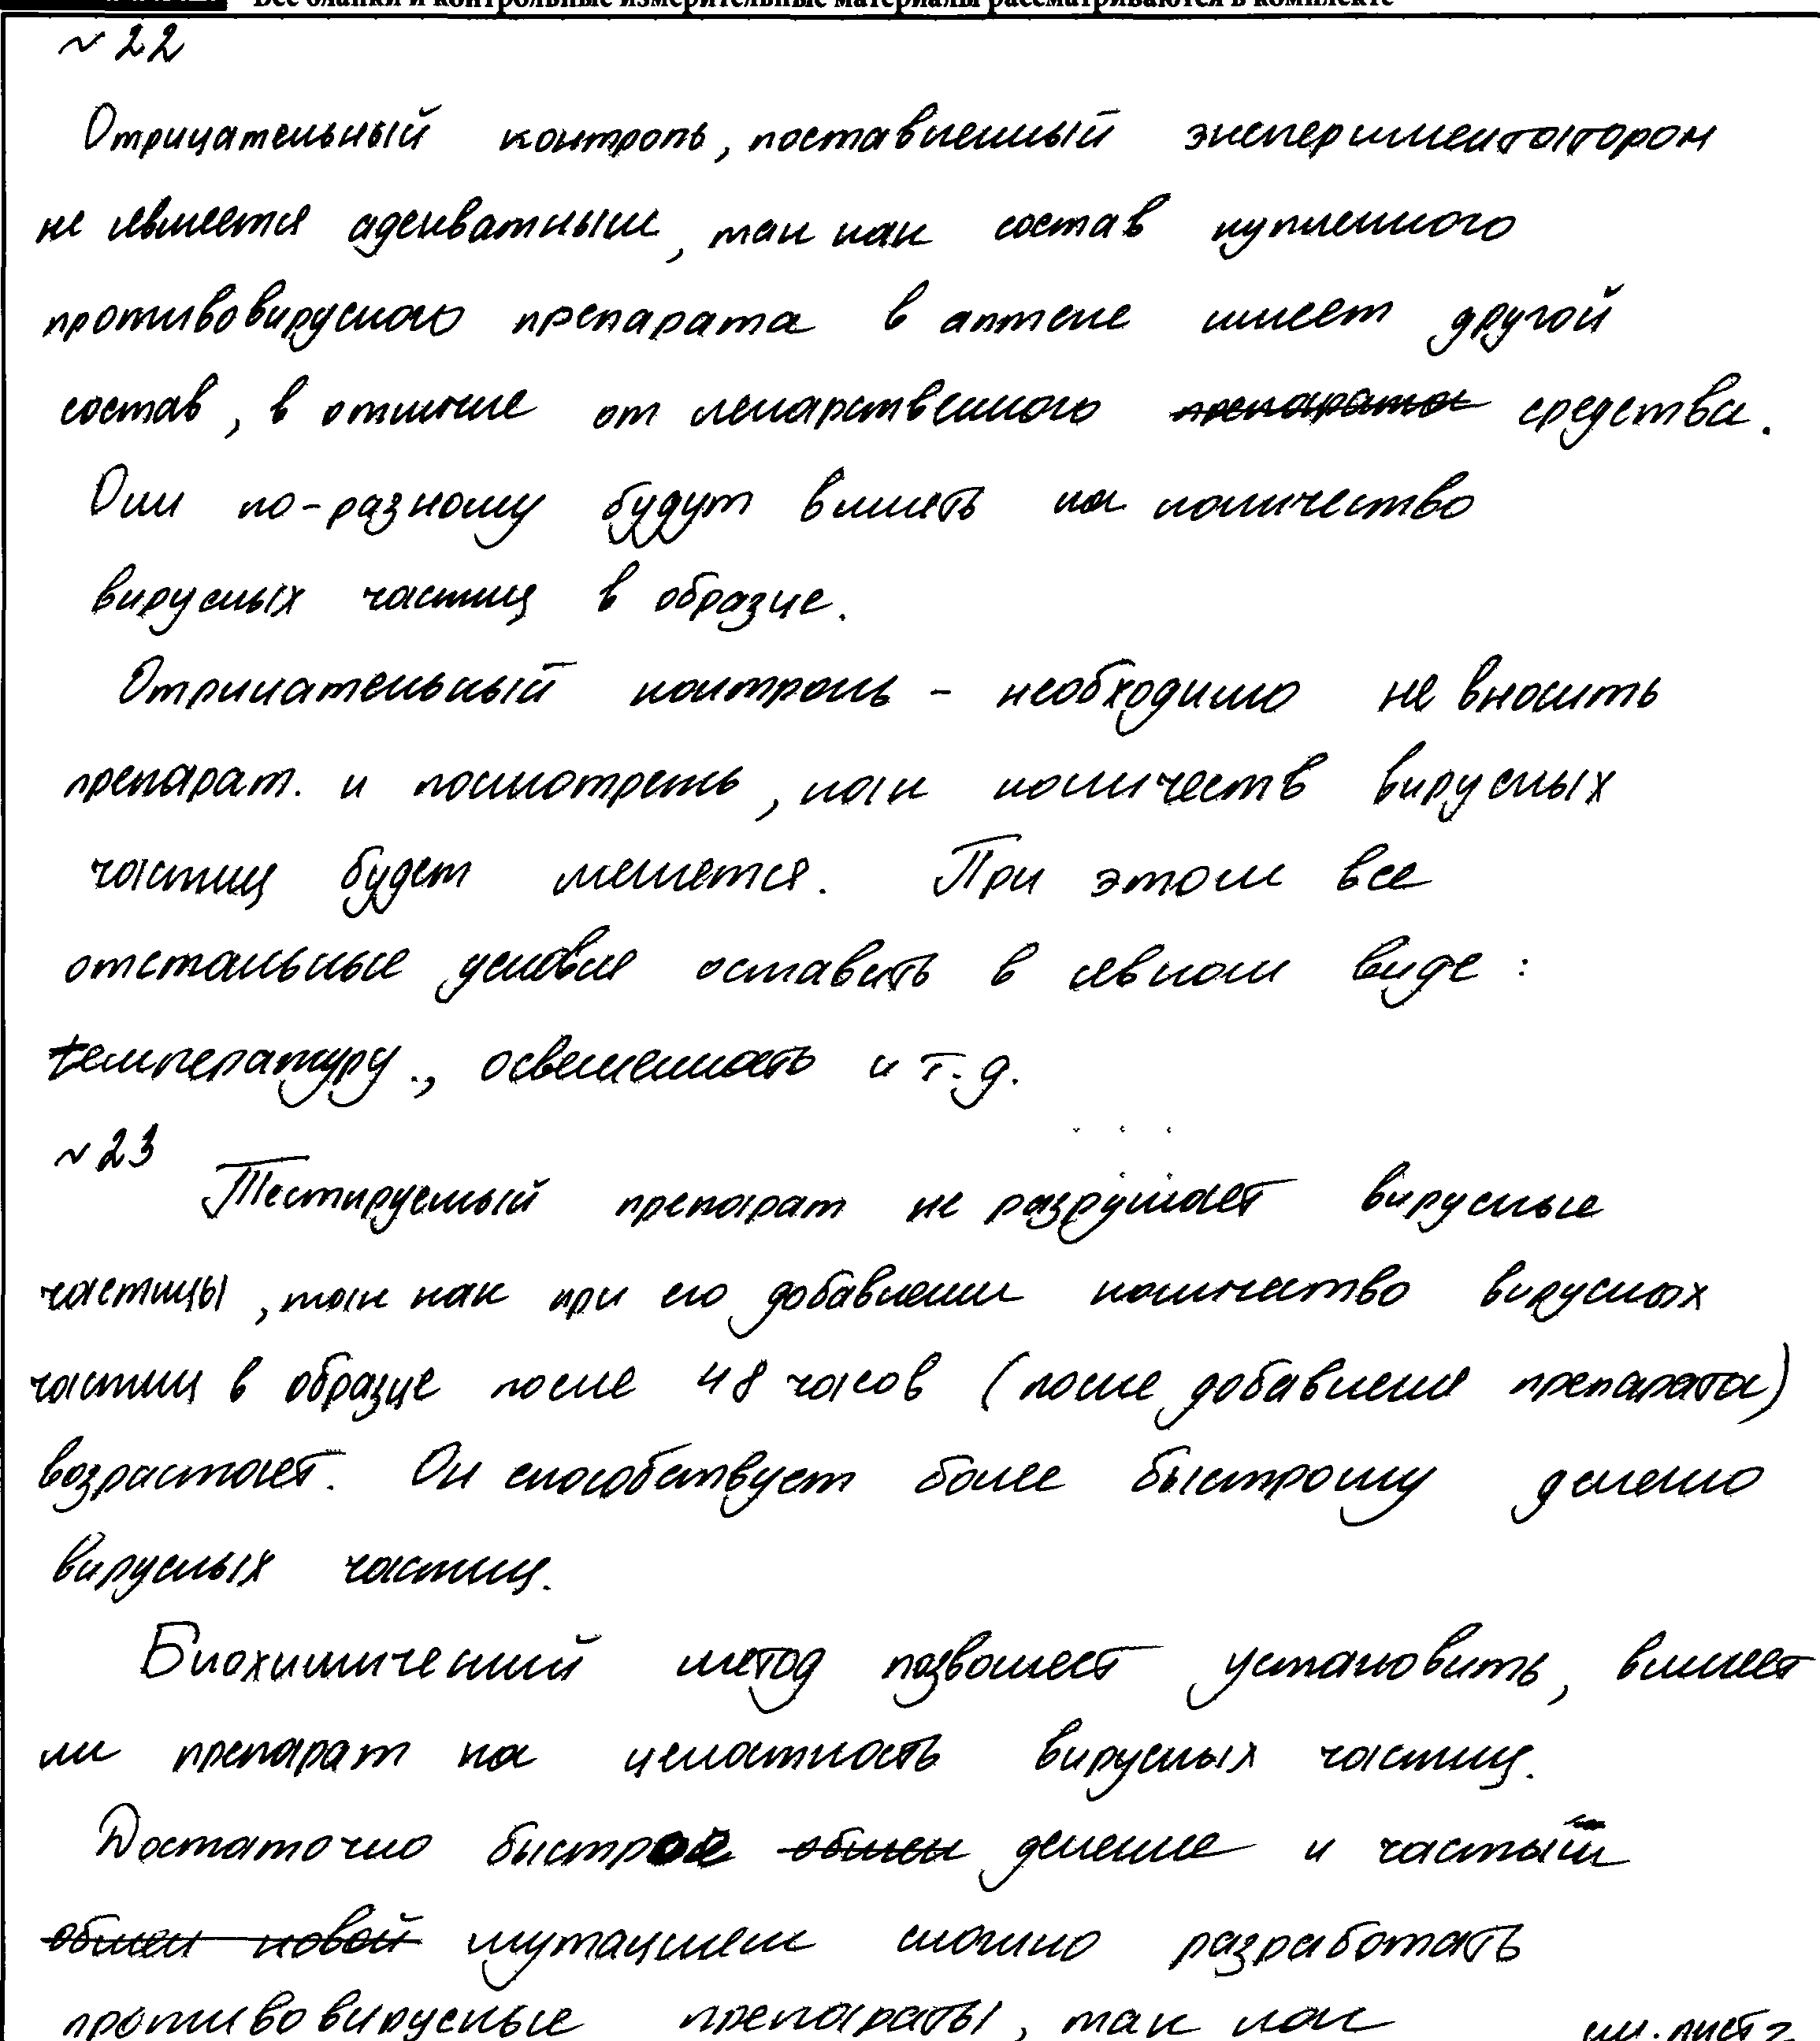 Все бланки и контрольные измерительные материалы рассматриваются в комплекте
~ 22
Отрицательный контроль, поставленный экспериментатором
не является адекватным, так как состав купленного
противовирусного препарата в аптеке имеет другой
состав, в отличие от лекарственного препарата средства.
Они по-разному будут влиять на количество
вирусных частиц в образце.
Отрицательный контроль - необходимо не вносить
препарат. и посмотреть, как количеств вирусных
частиц будет менятся. При этом все
отстальные условия оставить в явном виде :
температуру., освещенность и т.д.
~ 23
Тестируемый препарат не разрушает вирусные
частицы, так как при его добавлении количество вирусных
частиц в образце после 48 часов (после добавления препарата)
возрастает. Он способствует более быстрому делению
вирусных частиц.
Биохимический метод позволяет установить, влияет
ли препарат на целостность вирусных частиц.
Достаточно быстрое обмен деление и частый
обмен новой мутациям сложно разработать
противовирусные препараты, так как
см. лист 2